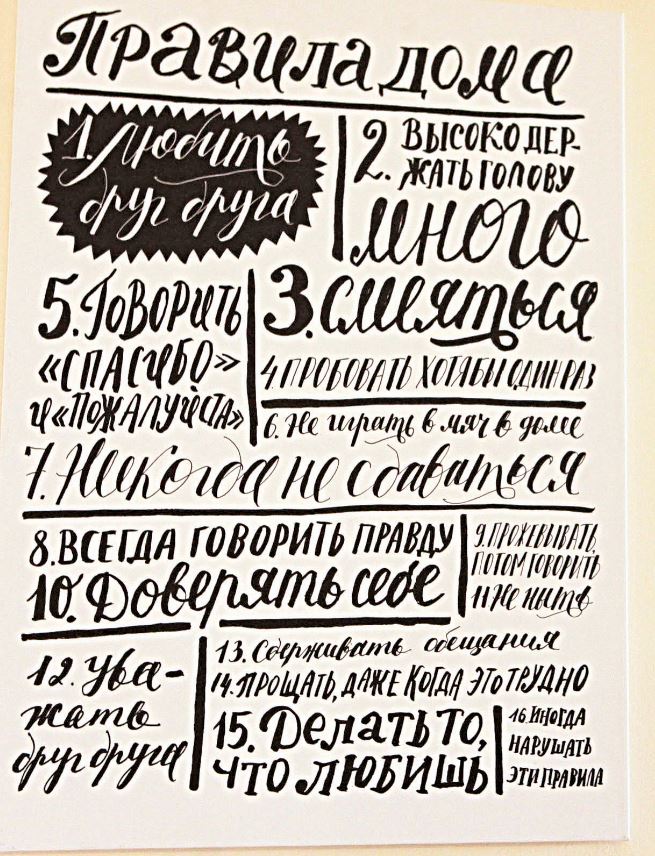 Правила дома
1. Любить
друг друга
2. ВЫСОКО ДЕР-
ЖАТЬ ГОЛОВУ
3. много
смеяться
4. ПРОБОВАТЬ ХОТЯ БЫ ОДИН РАЗ
5. ГОВОРИТЬ
«СПАСИБО»
и «ПОЖАЛУЙСТА»
6. Не играть в мяч в доме
7. Никогда не сдаваться
8. ВСЕГДА ГОВОРИТЬ ПРАВДУ
9. ПРОЖЕВЫВАТЬ,
ПОТОМ ГОВОРИТЬ
10. Доверять себе
11 Не ныть
12. Ува-
жать
друг друга
13. Сдерживать обещания
14. ПРОЩАТЬ, ДАЖЕ КОГДА ЭТО ТРУДНО
15. Делать то,
что ЛЮБИШЬ
16. ИНОГДА
НАРУШАТЬ
ЭТИ ПРАВИЛА